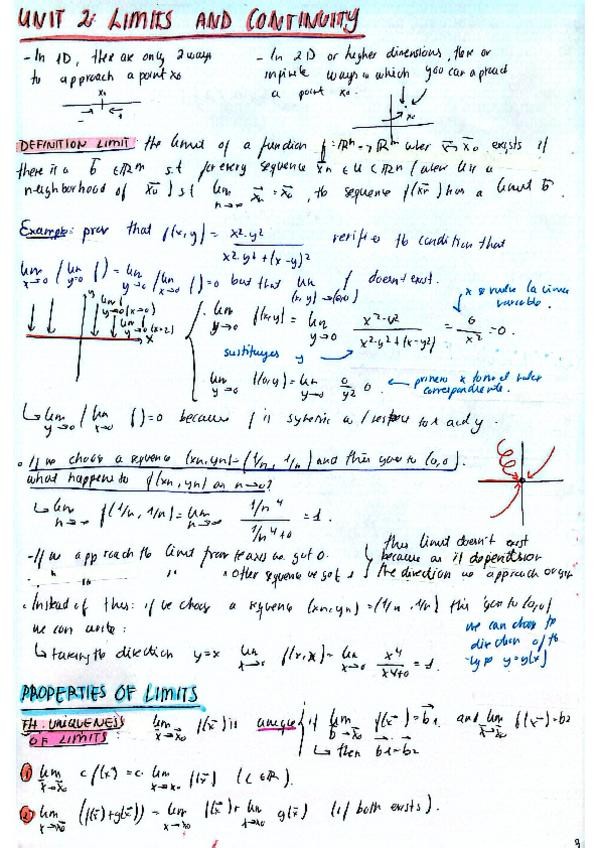 UNIT 2: LIMITS AND CONTINUITY
- In 1D, there are only 2 ways
to approach a point x0
- In 2D or higher dimensions, there are
infinite ways in which you can approach
a point x0.
x0
x0
DEFINITION LIMIT: the limit of a function f: ℝⁿ → ℝᵐ when x→x0 exists if
there is a b ∈ ℝᵐ s.t for every sequence xn ∈ U ⊂ ℝⁿ (when U is a
neighborhood of x0) s.t lim n→∞ xn = x0, the sequence f(xn) has a limit b.
Example: prove that f(x,y) = x²·y² / (x²·y² + (x-y)²) verifies the condition that
lim x→0 (lim y→0 f) = lim y→0 (lim x→0 f) = 0 but that lim (x,y)→(0,0) f doesn't exist.
lim y→0 (x→0)
lim y→0 (x=2)
y
x
lim y→0 f(x,y) = lim y→0 x²·y² / (x²·y² + (x-y)²) = 0/x² = 0.
x variable
sustituyes y
lim y→0 f(0,y) = lim y→0 0/y² = 0
primero x
↳ lim y→0 (lim x→0 f) = 0 because f is symmetric w/ respect to x and y.
• If we choose a sequence (xn, yn) = (1/n, 1/n) and this goes to (0,0).
what happens to f(xn, yn) as n→∞?
↳ lim n→∞ f(1/n, 1/n) = lim n→∞ (1/n⁴) / (1/n⁴+0) = 1.
- If we approach the limit from the axes we get 0.
" " " other sequence we get 1
this limit doesn't exist
because as it depends on
the direction we approach origin
• Instead of this: if we choose a sequence (xn,yn) = (1/n, 1/n) this goes to (0,0)
we can write:
↳ taking the direction y=x lim x→0 f(x,x) = lim x→0 x⁴/(x⁴+0) = 1.
we can choose the
direction of the
type y=g(x)
PROPERTIES OF LIMITS
TH. UNIQUENESS
OF LIMITS: lim x→x0 f(x) is unique if lim x→x0 f(x) = b1 and lim x→x0 f(x) = b2
↳ then b1 = b2
① lim x→x0 c f(x) = c· lim x→x0 f(x) (c ∈ ℝ).
② lim x→x0 (f(x)+g(x)) = lim x→x0 f(x) + lim x→x0 g(x) (if both exists).